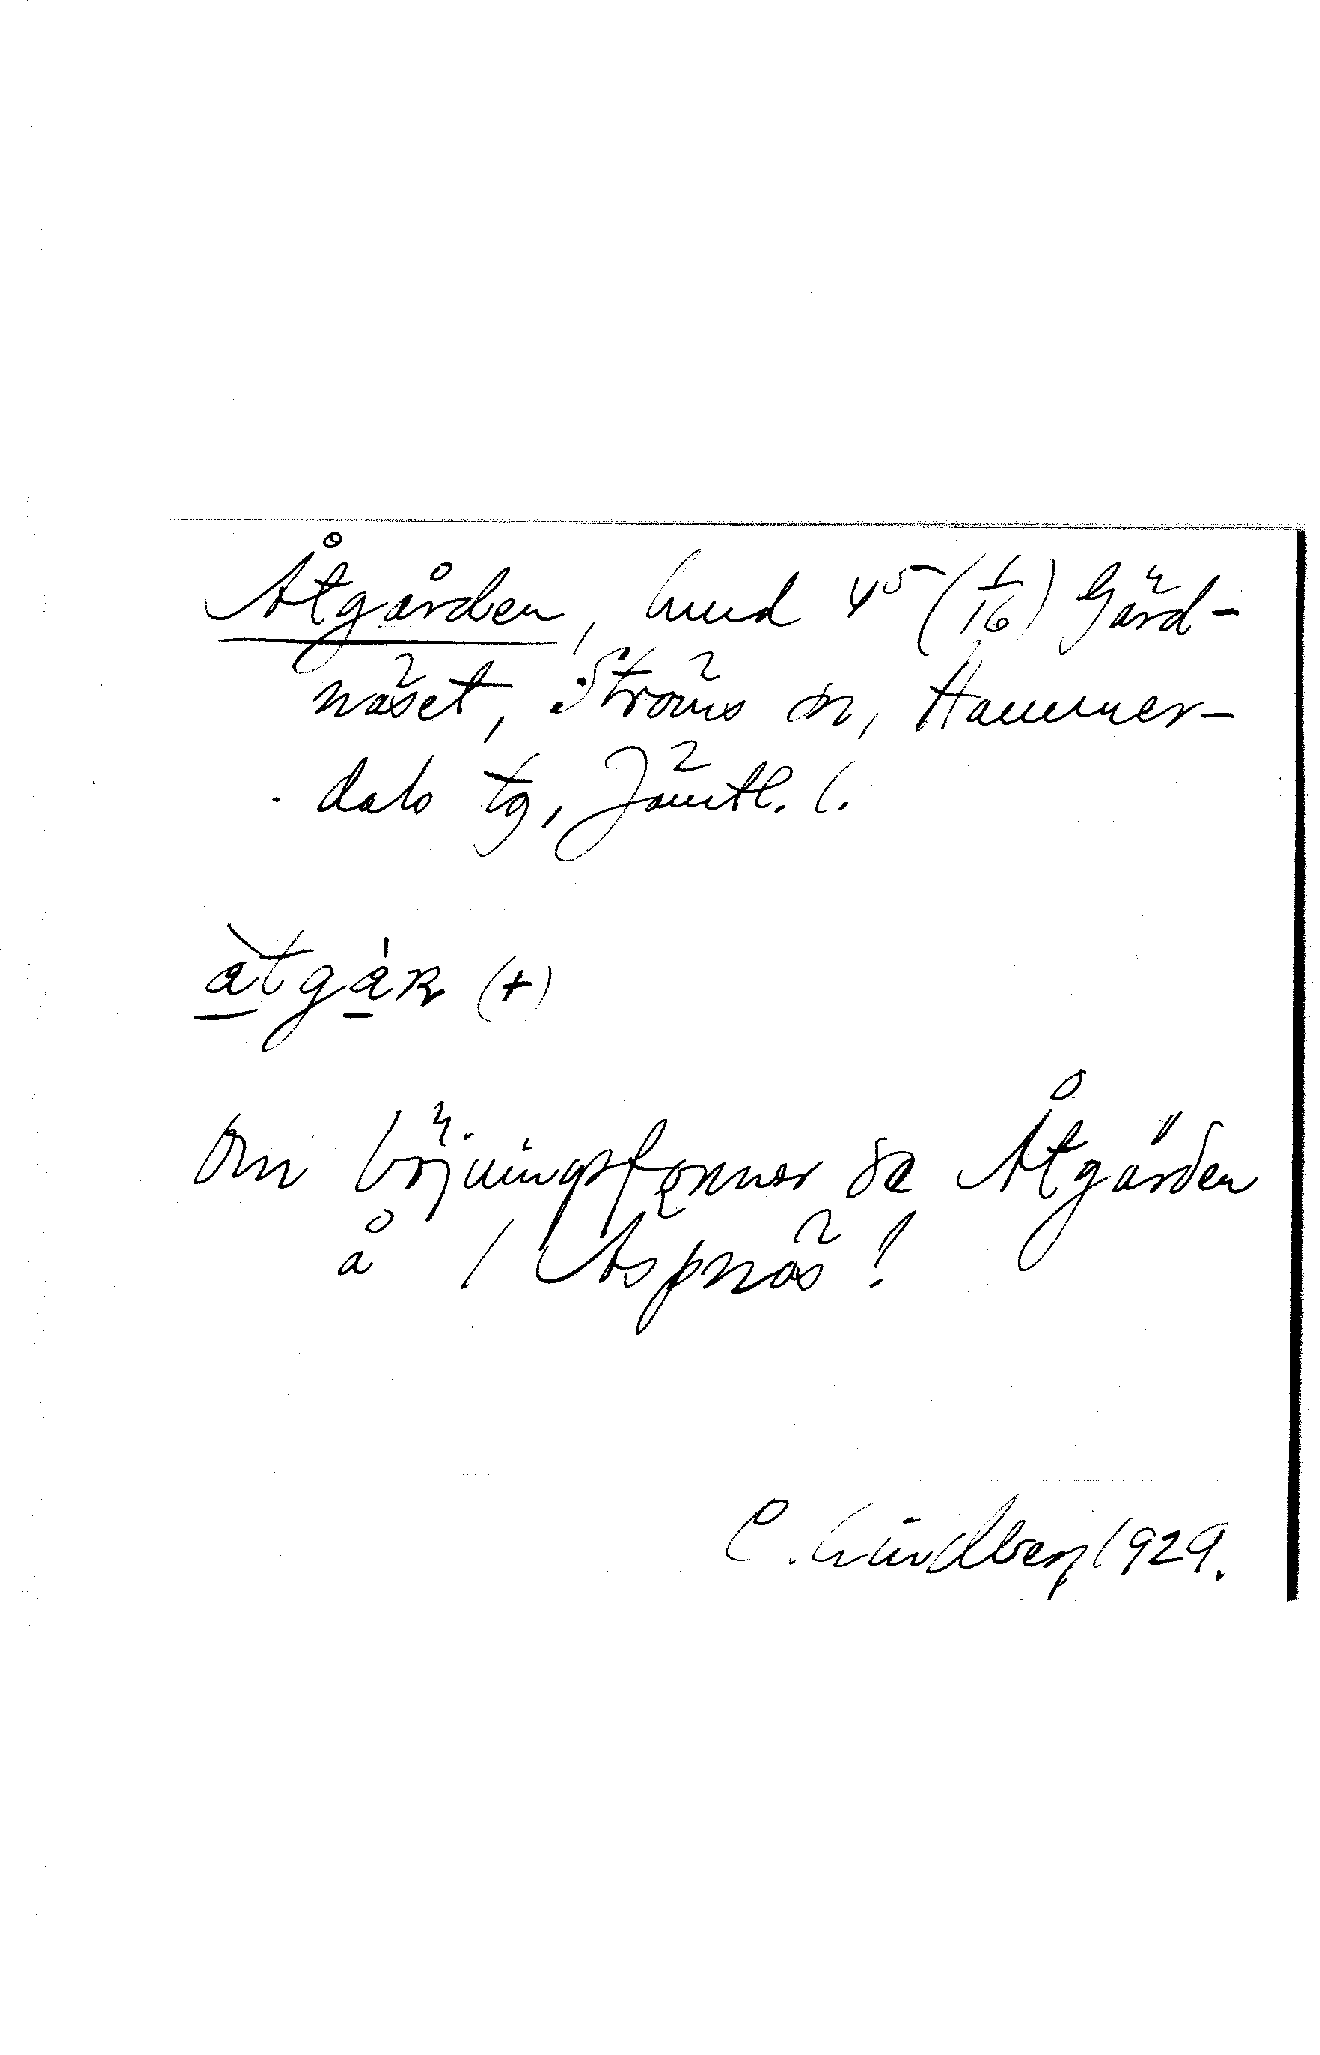 Åtgården, hmd 4⁵ (1/16) Gärd-
näset, Ströms sn, Hammer-
dals tg, Jämtl. l.
àtgáɴ (+)
Om böjningsformer se Åtgärden
å 1 Aspnäs!
C. Lindberg 1929.